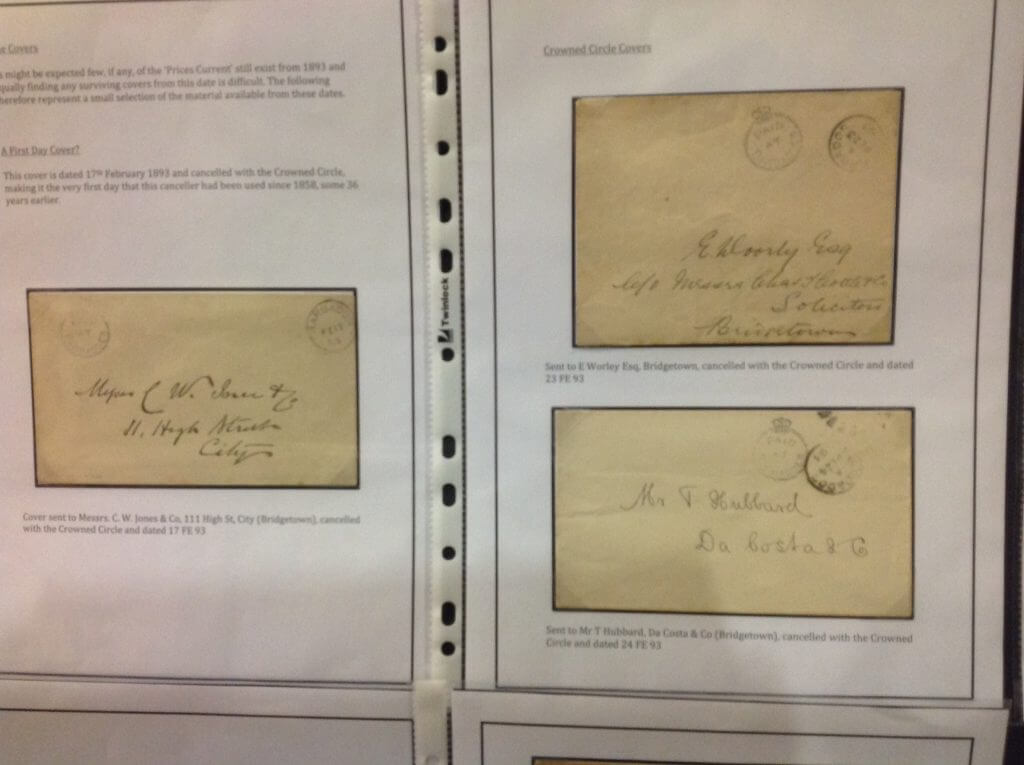 e Covers
s might be expected few, if any, of the 'Prices Current' still exist from 1893 and
qually finding any surviving covers from this date is difficult. The following
herefore represent a small selection of the material available from these dates.
A First Day Cover?
This cover is dated 17th February 1893 and cancelled with the Crowned Circle,
making it the very first day that this canceller had been used since 1858, some 36
years earlier.
Messrs C. W. Jones & Co
11, High Street
City
Cover sent to Messrs. C. W. Jones & Co, 111 High St, City (Bridgetown), cancelled
with the Crowned Circle and dated 17 FE 93
Twinlock
Crowned Circle Covers
PAID
AT
E. Doorly Esq
c/o Messrs Chas
Solicitors
Bridgetown
Sent to E Worley Esq, Bridgetown, cancelled with the Crowned Circle and dated
23 FE 93
PAID
Mr T Hubbard
Da Costa & Co
Sent to Mr T Hubbard, Da Costa & Co (Bridgetown), cancelled with the Crowned
Circle and dated 24 FE 93